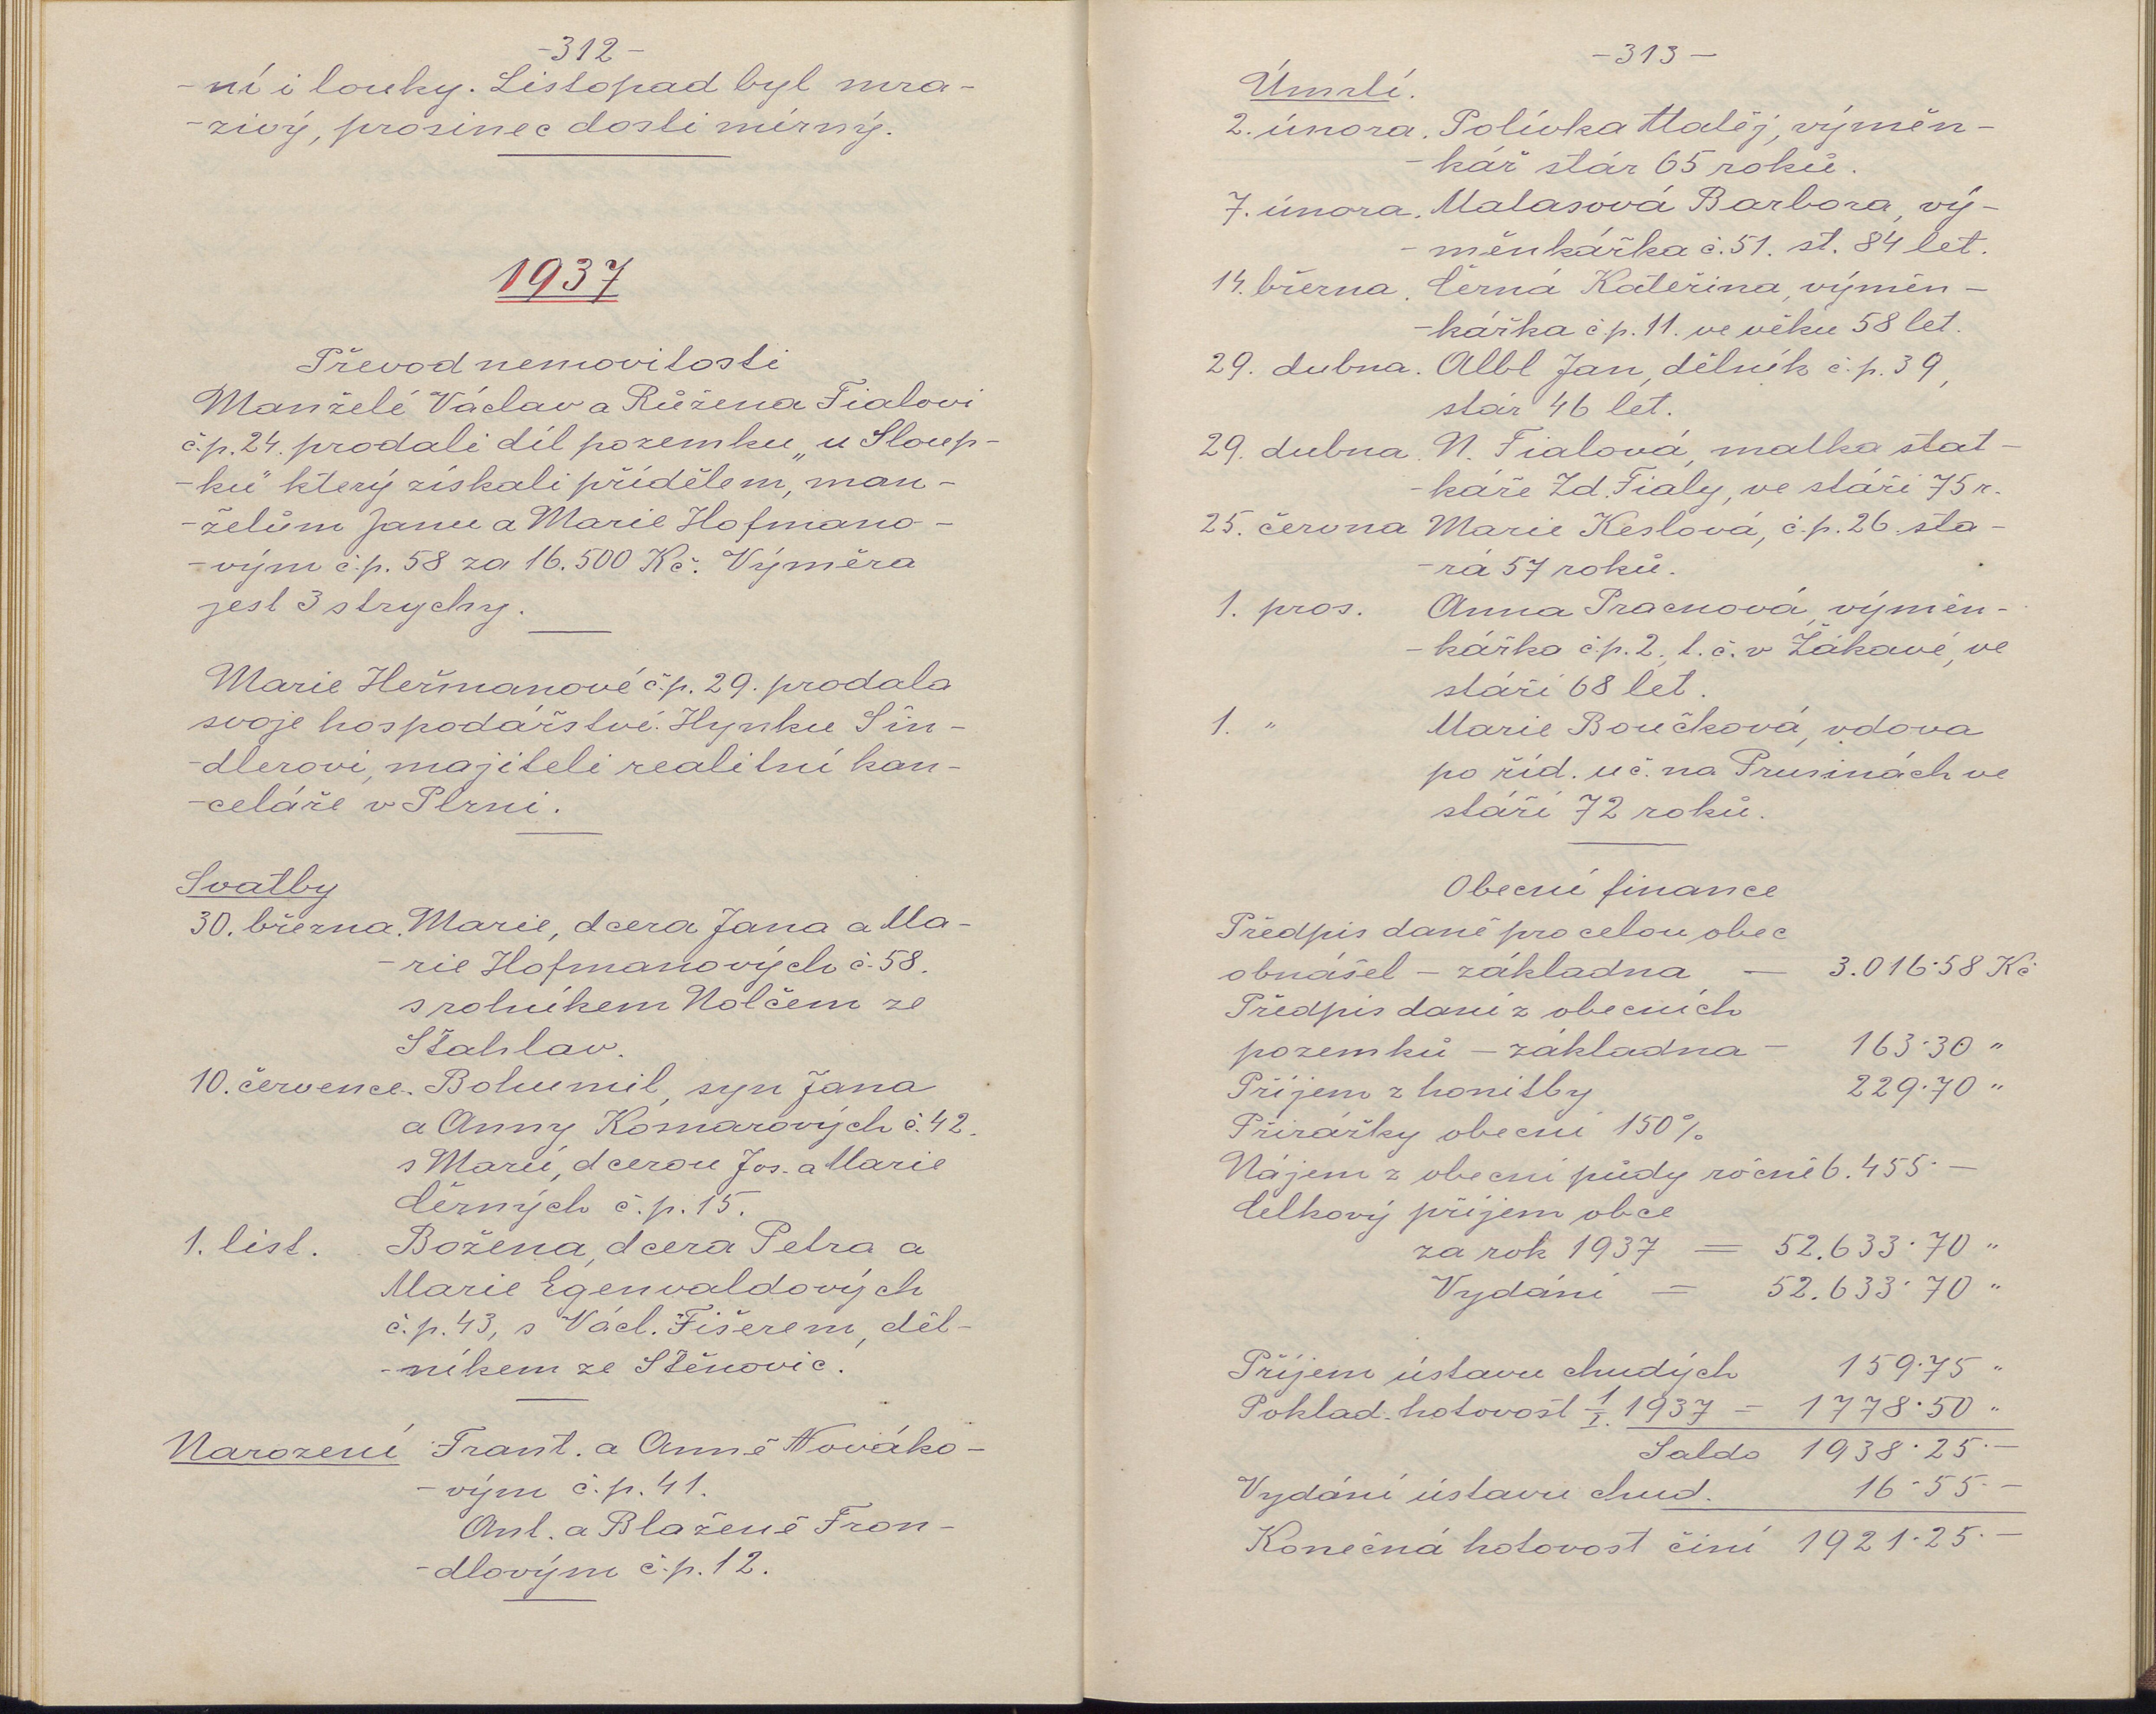 -312-
-ní i louky. Listopad byl mra-
-zivý, prosinec dosti mírný.
1937
Převod nemovitosti
Manželé Václav a Růžena Fialovi
č.p. 24. prodali díl pozemku „u Sloup-
-ku" který získali přídělem, man-
-želům Janu a Marie Hofmano-
-vým č.p. 58 za 16.500 Kč. Výměra
jest 3 strychy.
Marie Heřmanové č.p. 29. prodala
svoje hospodářství. Hynku Šin-
-dlerovi, majiteli realitní kan-
-celáře v Plzni.
Svatby
30. března. Marie, dcera Jana a Ma-
-rie Hofmanových č. 58.
s rolníkem Nolčem ze
Šťahlav.
10. července. Bohumil, syn Jana
a Anny Komarových č. 42.
s Marií, dcerou Jos. a Marie
Černých č.p. 15.
1. list. Božena, dcera Petra a
Marie Egenvaldových
č.p. 43, s Václ. Fišerem, děl-
-níkem ze Štěnovic.
Narození Frant. a Anně Nováko-
-vým č.p. 41.
Ant. a Blaženě Fron-
-dlovým č.p. 12.
-313-
Úmrtí.
2. února. Polívka Matěj, výměn-
-kář stár 65 roků.
7. února. Malasová Barbora, vý-
-měnkářka č. 51. st. 84 let.
14. března. Černá Kateřina, výměn-
-kářka č.p. 11. ve věku 58 let.
29. dubna. Albl Jan, dělník č.p. 39,
stár 46 let.
29. dubna. N. Fialová, matka stat-
-káře Zd. Fialy, ve stáří 75 r.
25. června Marie Keslová, č.p. 26. sta-
-rá 57 roků.
1. pros. Anna Pracnová, výměn-
-kářka č.p. 2., t.č. v Žákavé, ve
stáří 68 let.
1. " Marie Boučková, vdova
po říd. uč. na Prusinách ve
stáří 72 roků.
Obecní finance
Předpis daně pro celou obec
obnášel – základna – 3.016·58 Kč
Předpis daní z obecních
pozemků – základna – 163·30 "
Příjem z honitby 229·70 "
Přirážky obecní 150%
Nájem z obecní půdy ročně 6.455·–
Celkový příjem obce
za rok 1937 = 52.633·70 "
Vydání = 52.633·70 "
Příjem ústavu chudých 159·75 "
Poklad. hotovost 1/I. 1937 = 1778·50 "
Saldo 1938·25·–
Vydání ústavu chud. 16·55·–
Konečná hotovost činí 1921·25·–